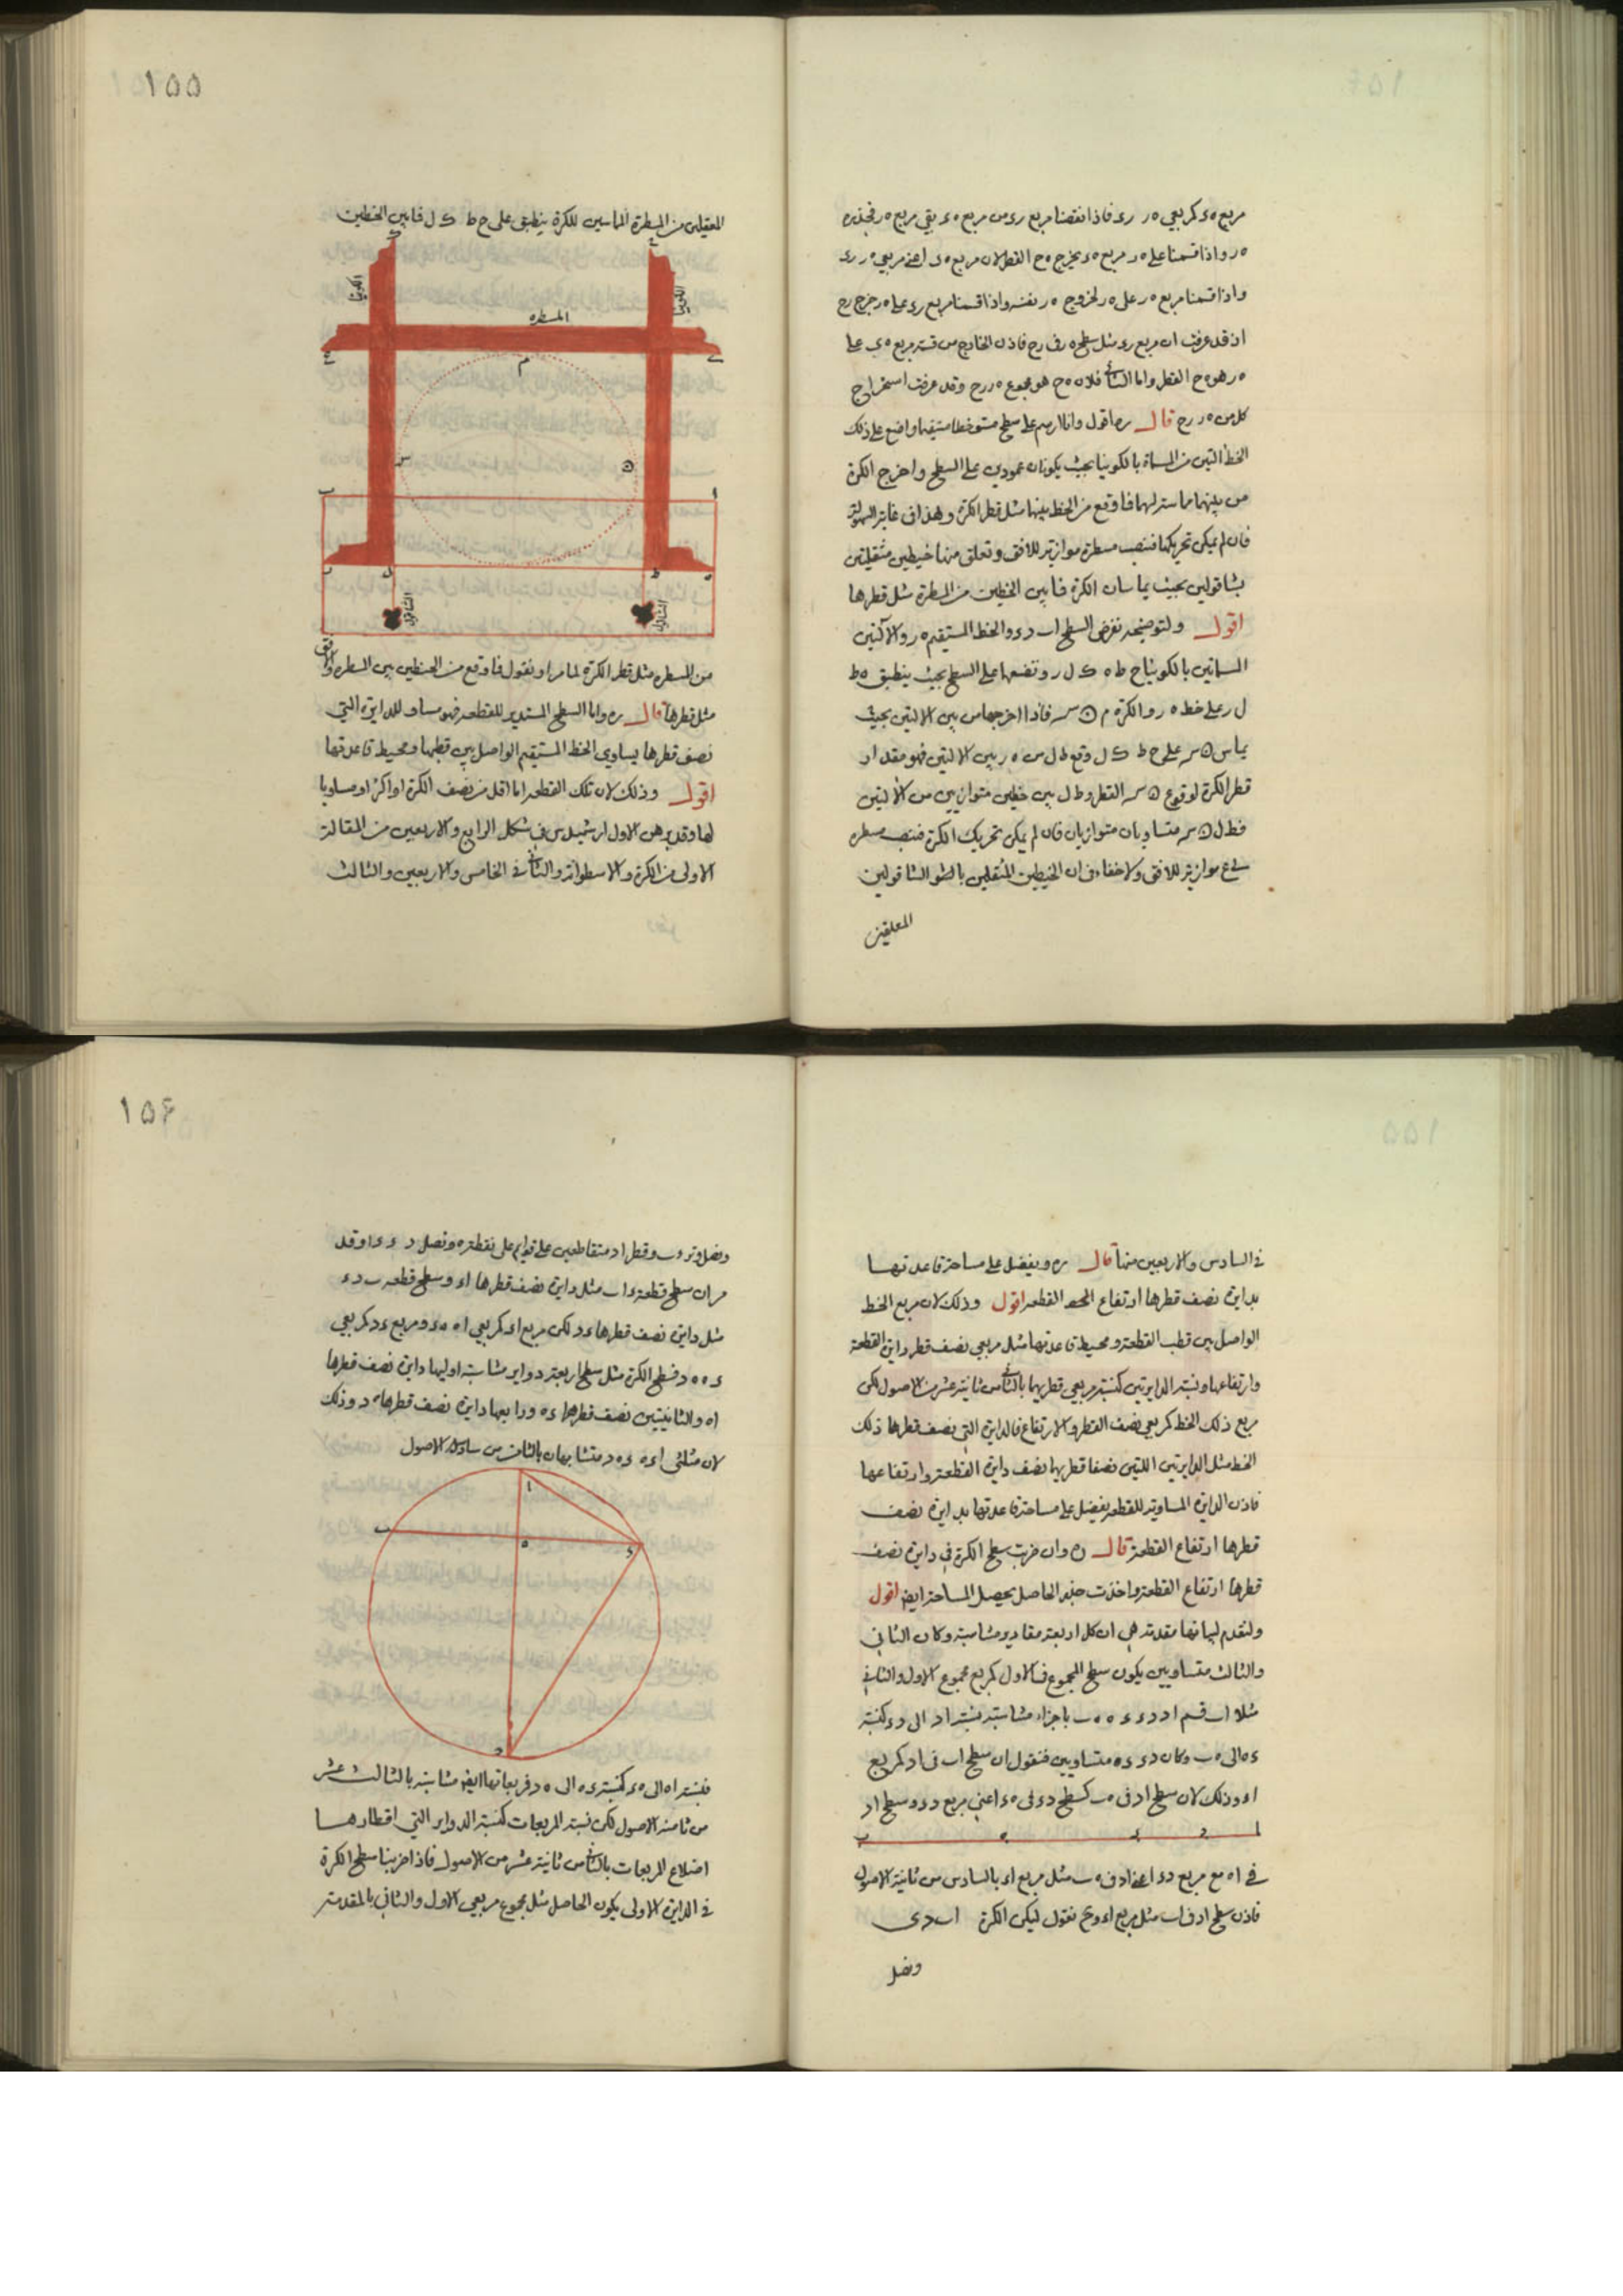 مربع ه ى كمربعي ه ر رى فاذا نقصنا مربع رى من مربع ه ى بقي مربع ه ر فجذره
ه ر واذا قسمنا على ه ر مربع ه ى يخرج ه ح القطر لان مربع ه ى اعني مربعي ه ر رى
واذا قسمنا مربع ه ر على ه ر لخروج ه ر نفسه واذا قسمنا مربع رى على ه ر خرج رح
اذ قد عرفت ان مربع رى مثل سطح ه ر في رح فاذن الخارج من قسمة مربع ه ى على
ه ر هو ه ح القطر واما الثاني فلان ه ح هو مجموع ه ر رح وقد عرفت استخراج
كل من ه ر رح قال ره اقول وانا ارسم على سطح مستو خطا مستقيما واضع على ذلك
الخط التين من المسماة بالكونيا بحيث يكونان عمودين على السطح واخرج الكرة
من بينهما مماسة لهما فما وقع من الخط بينهما مثل قطر الكرة وهذا في غاية السهولة
فان لم يمكن تحريكها فننصب مسطرة موازية للافق ونعلق منها خيطين مثقلين
بشاقولين بحيث يماسان الكرة فما بين الخيطين من المسطرة مثل قطرها
اقول ولتوضيحه نفرض السطح ا ب د ء والخط المستقيم ه ر والالتين
المسماتين بالكونيا ح ط ه ك ل ر ونضعهما على السطح بحيث ينطبق ه ط
ل ر على خط ه ر والكرة م ن س فاذا اخرجها من بين الالتين بحيث
يماس ن س على ح ط ك ل وقع ط ل من ه ر بين الالتين فهو مقدار
قطر الكرة لوقوع ن س القطر وط ل بين خطين متوازيين من الالتين
فط ل ن س متساويان متوازيان فان لم يمكن تحريك الكرة فننصب مسطرة
موازية للافق ولا خفاء في ان الخيطين المثقلين بالشاقولين
المعلقين
١٥٥
المعلقين من المسطرة المماسين للكرة ينطبق على ح ط ك ل فما بين الخيطين
الكونيا
الكونيا
المسطره
م
ن
س
ا
ب
ه
ط
ل
ر
الشاقول
الشاقول
من المسطره مثل قطر الكرة لما مر او نقول فما وقع من الخيطين بين المسطره والافق
مثل قطرها قال ره واما السطح المستدير للقطعه فهو مساو للدايرة التي
نصف قطرها يساوي الخط المستقيم الواصل بين قطبها ومحيط قاعدتها
اقول وذلك لان تلك القطعه اما اقل من نصف الكرة او اكثر او مساويا
لها وقد برهن الاول ارشميدس في شكل الرابع والاربعين من المقالة
الاولى من الكرة والاسطوانة والثاني في الخامس والاربعين والثالث
في السادس والاربعين منها قال ره ويفضل على مساحة قاعدتها
بدايرة نصف قطرها ارتفاع القطعه اقول وذلك لان مربع الخط
الواصل بين قطب القطعة ومحيط قاعدتها مثل مربعي نصف قطر دايرة القطعة
وارتفاعها ونسبة الدايرتين كنسبة مربعي قطريهما بالثاني من ثانية عشر من الاصول لكن
مربع ذلك الخط كمربعي نصف القطر والارتفاع فالدايرة التي نصف قطرها ذلك
الخط مثل الدايرتين اللتين نصفا قطريهما نصف دايرة القطعة وارتفاعها
فاذن الدايرة المساوية للقطعه يفضل على مساحة قاعدتها بدايرة نصف
قطرها ارتفاع القطعة قال ره وان ضربت سطح الكرة في دايرة نصف
قطرها ارتفاع القطعة واخذت جذر الحاصل يحصل المساحة ايضا اقول
ولنقدم لبيانها مقدمة هي ان كل اربعة مقادير متناسبة وكان الثاني
والثالث متساويين يكون سطح المجموع في الاول كمربع مجموع الاول والثاني
مثلا ا ب قسم ا د د ء ء ه ه ب باجزاء متناسبة نسبة ا د الى د ء كنسبة
ء ه الى ه ب وكان د ء ء ه متساويين فنقول ان سطح ا ب في ا د كمربع
ا ء وذلك لان سطح ا د في ه ب كسطح د ء في ه ء اعني مربع د ء وسطح ا د
ا د ء ه ب
في ا ه مع مربع د ء اعني ا د في ه ب مثل مربع ا ء بالسادس من ثانية الاصول
فاذن سطح ا د في ا ب مثل مربع ا ء وح نقول ليكن الكرة ا ب د ى
ونصل
١٥۶
ونصل وتر ء ب وقطر ا د متقاطعين على قوايم على نقطة ه ونصل د ء ء ا وقد
مر ان سطح قطعة ء ا ب مثل دايرة نصف قطرها ا ء وسطح قطعه ب د ء
مثل دايرة نصف قطرها ء د لكن مربع ا ء كمربعي ا ه ه ء ومربع ء د كمربعي
ء ه ه د فسطح الكرة مثل سطح اربعة دواير متناسبة اوليها دايرة نصف قطرها
ا ه والثانيتين نصف قطرهما ء ه ورابعها دايرة نصف قطرها ه د وذلك
لان مثلثي ا ء ه ء ه د متشابهان بالثامن من سادسة الاصول
ا
ب
ه
ء
د
فنسبة ا ه الى ه ء كنسبة ء ه الى ه د فمربعاتها ايضا متناسبة بالثالث عشر
من ثامنة الاصول لكن نسبة المربعات كنسبة الدواير التي اقطارها
اضلاع المربعات بالثاني من ثانية عشر من الاصول فاذا ضربنا سطح الكرة
في الدايرة الاولى يكون الحاصل مثل مجموع مربعي الاول والثاني بالمقدمة